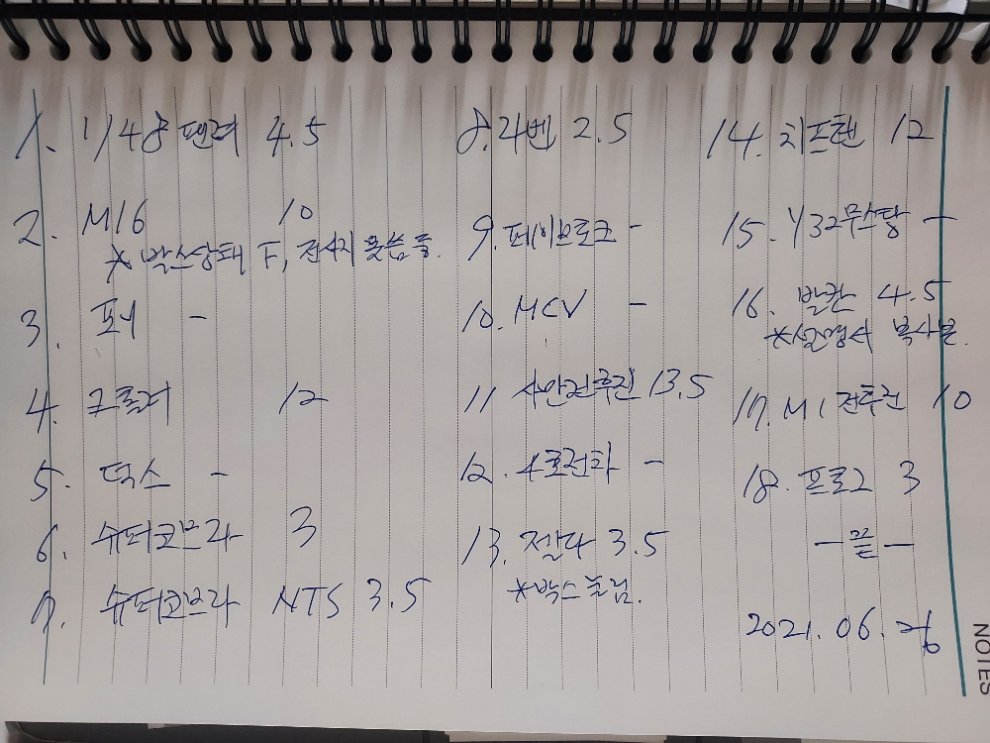 1. 1/48 팬저 4.5
2. M16 10
* 박스상태 F, 전사지
3. 포니 -
4. 크롤러 12
5. 덕스 -
6. 슈퍼코브라 3
7. 슈퍼코브라 NTS 3.5
8. 라벤 2.5
9. 페이브로크 -
10. MCV -
11 사안전후진 13.5
12. 4호전차 -
13. 젤다 3.5
*박스눌림.
14. 치프텐 12
15. Y32무스탕 -
16. 발칸 4.5
*설명서 복사본.
17. M1전투건 10
18. 프로그 3
- 끝 -
2021. 06. 26
NOTES